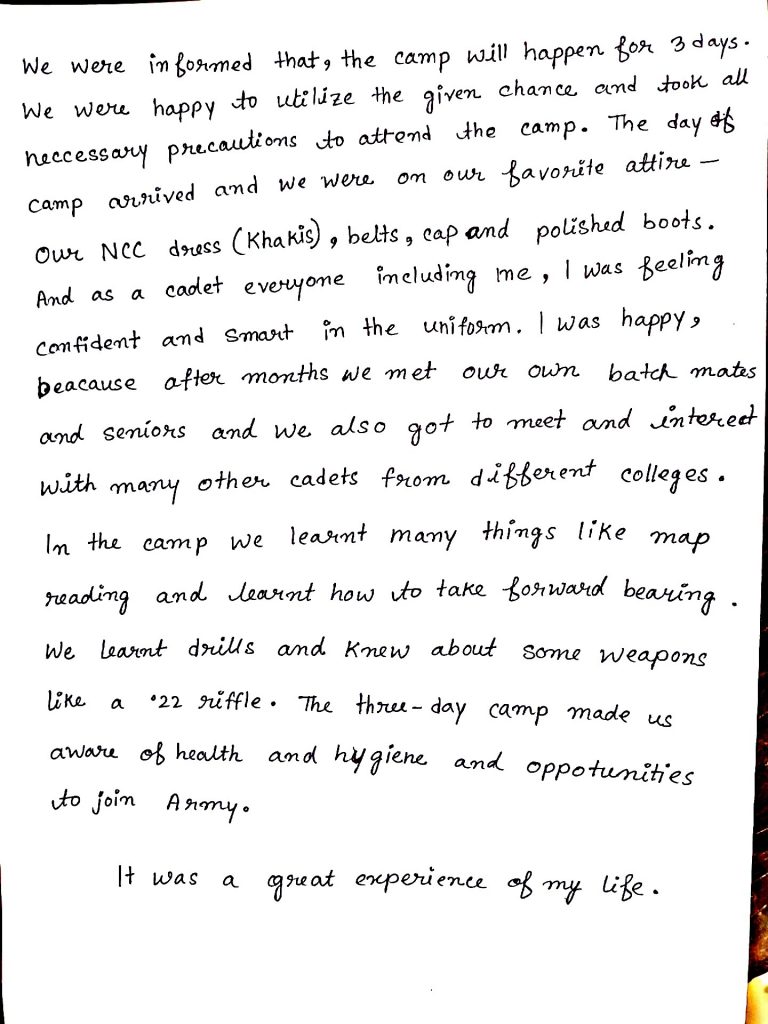 We were informed that, the camp will happen for 3 days.
We were happy to utilize the given chance and took all
neccessary precautions to attend the camp. The day of
camp arrived and we were on our favorite attire -
Our NCC dress (Khakis), belts, cap and polished boots.
And as a cadet everyone including me, I was feeling
confident and smart in the uniform. I was happy,
beacause after months we met our own batch mates
and seniors and we also got to meet and interect
with many other cadets from different colleges.
In the camp we learnt many things like map
reading and learnt how to take forward bearing.
We learnt drills and knew about some weapons
like a .22 riffle. The three-day camp made us
aware of health and hygiene and oppotunities
to join Army.
It was a great experience of my life.